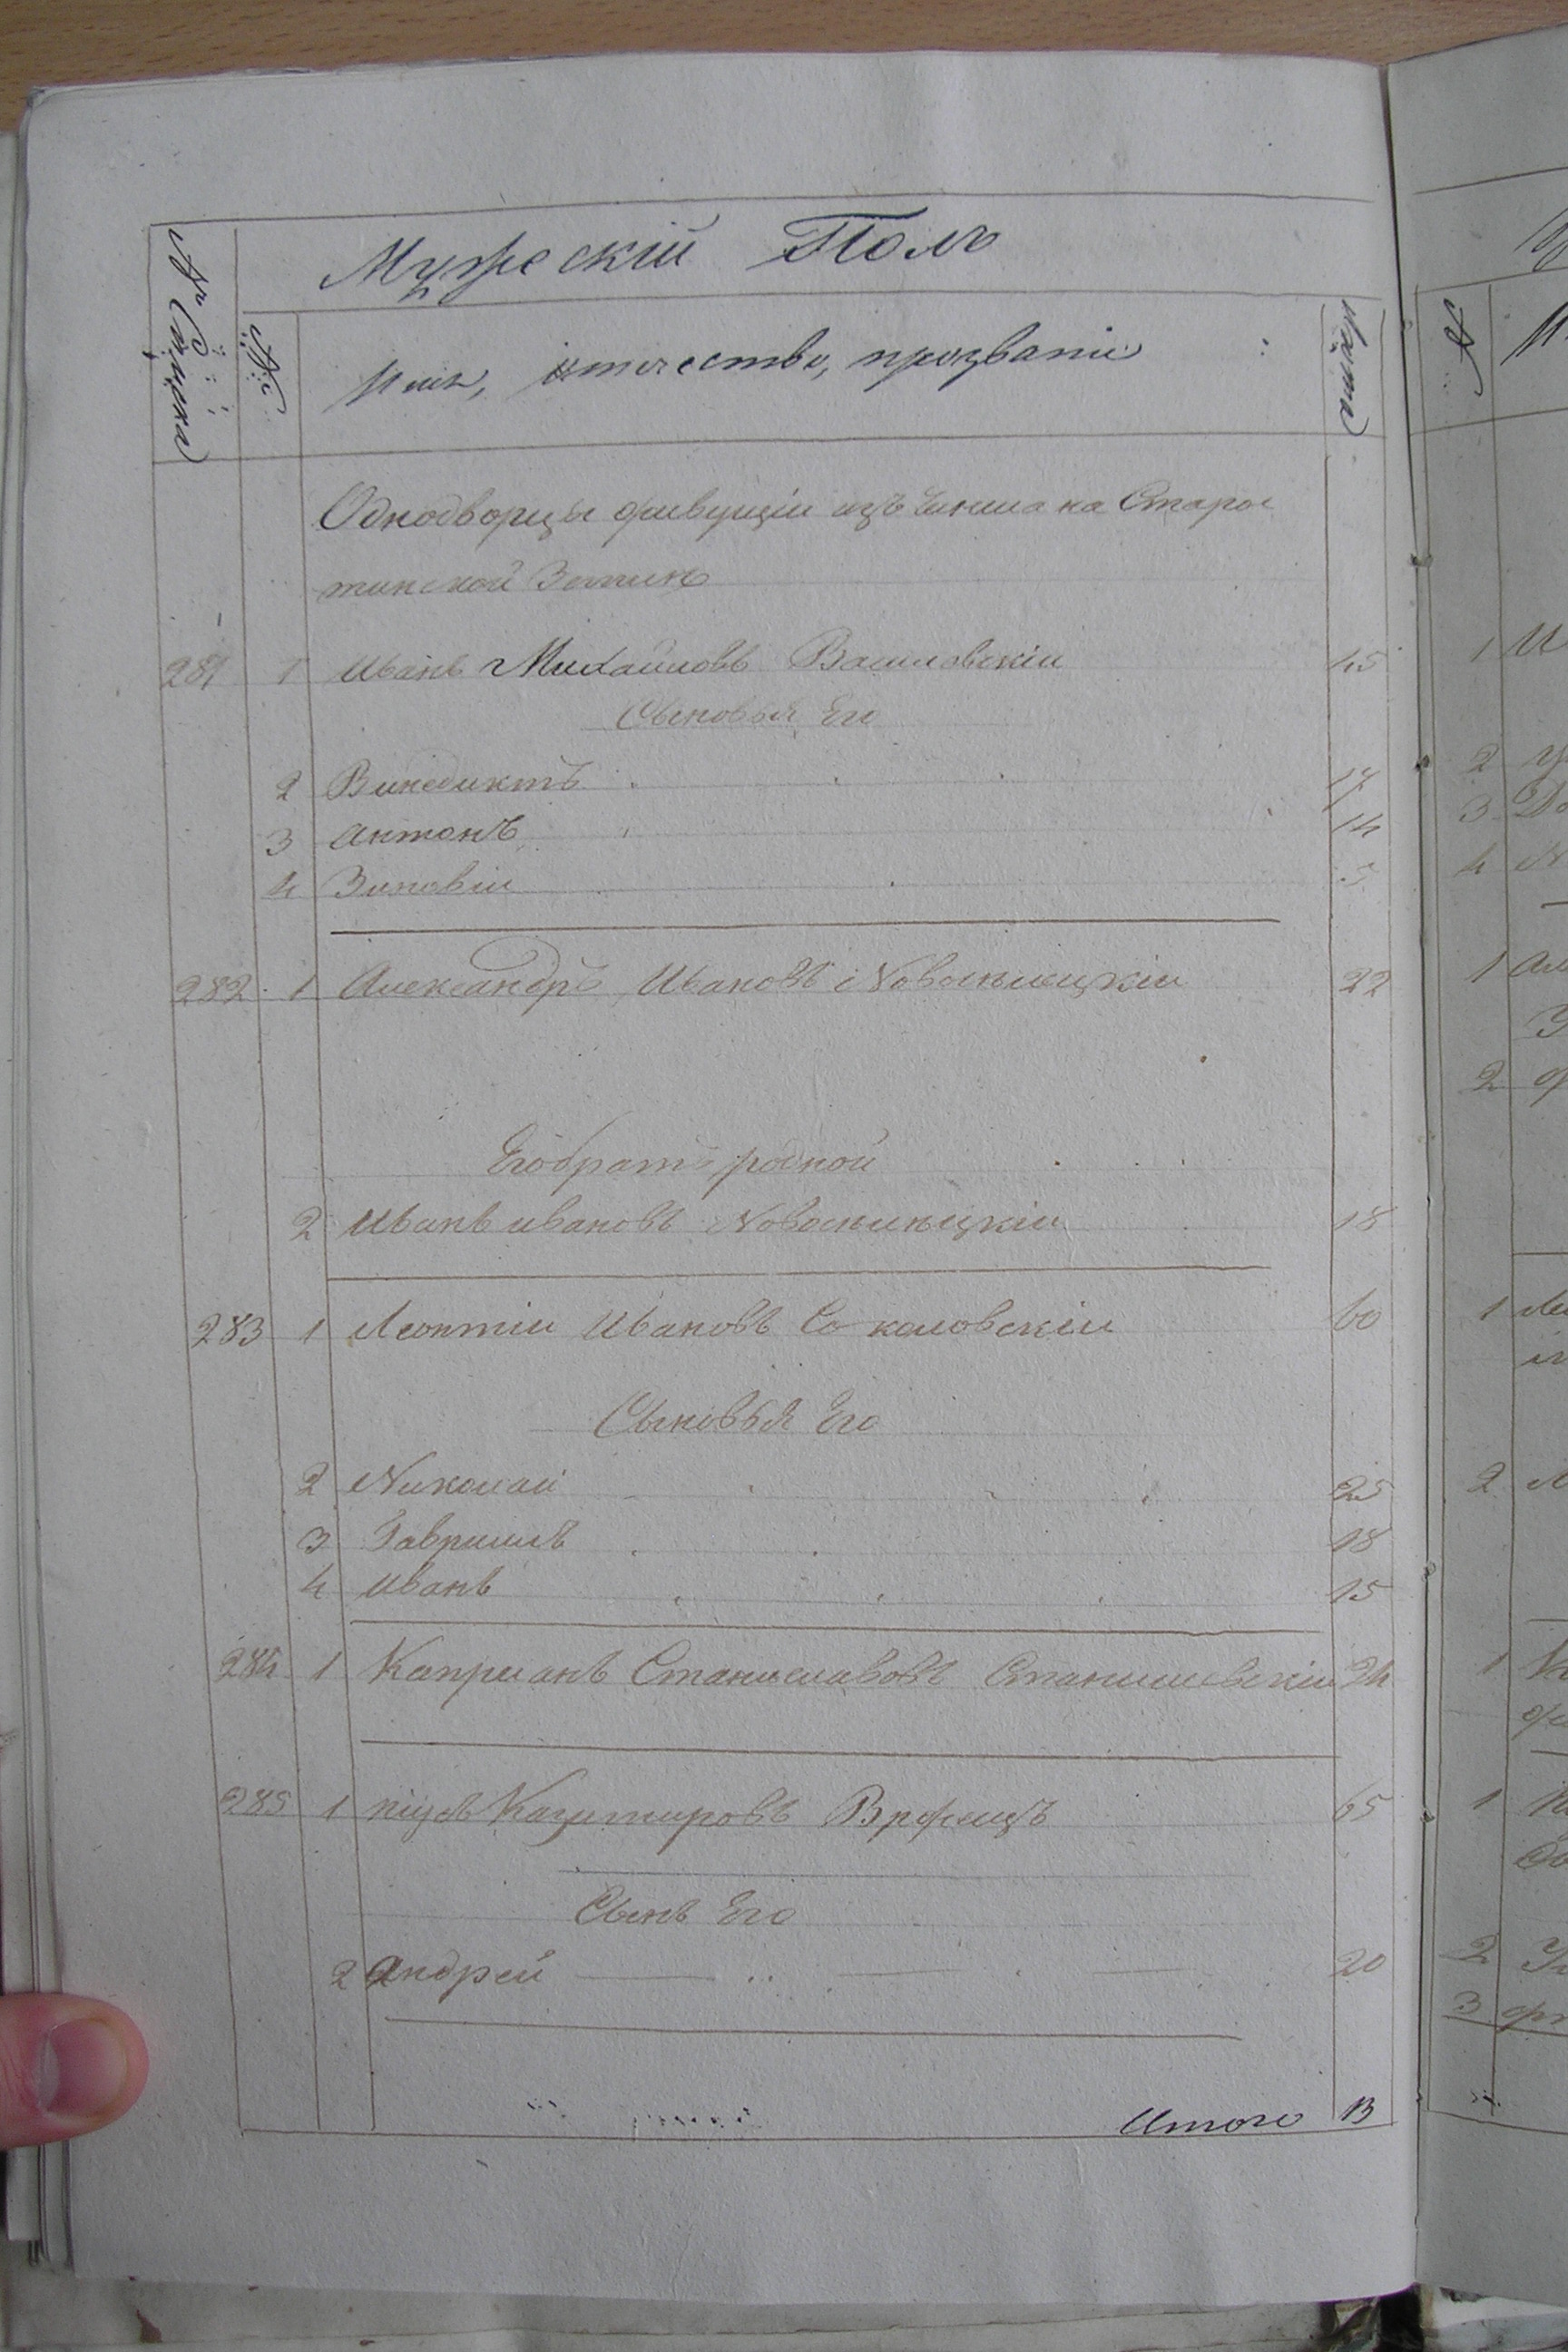 Мужескій Полъ
№ Семьи
№
Имя, отечество, прозваніе
Лѣта
Однодворцы живущіи изъ Чинша на Старос
тинской Землѣ
281 1 Иванъ Михайловъ Василевскіи 45
Сыновья Его
2 Винедиктъ 17
3 Антонъ 14
4 Зиновіи 5
282 1 Александръ Ивановъ Новоселецкіи 22
Его братъ родной
2 Иванъ Ивановъ Новоселецкіи 18
283 1 Леонтіи Ивановъ Соколовскіи 60
Сыновья Его
2 Николай 25
3 Гаврішлъ 18
4 Иванъ 15
284 1 Каприанъ Станиславовъ Станишевскіи 24
285 1 Казимировъ 65
Сынъ Его
2 Андрей 20
Итого 13
1 И
2
3 До
4 М
1 Ал
2
1 Ле
2
1
1
2
3